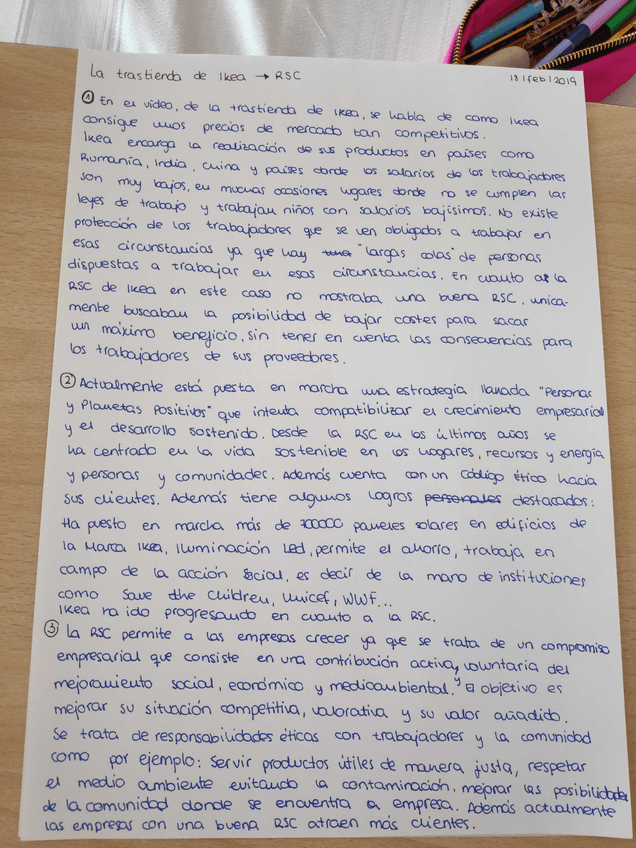 La trastienda de Ikea → RSC
18/feb/2019
① En el video, de la trastienda de IKEA, se habla de como Ikea
consigue unos precios de mercado tan competitivos.
Ikea encarga la realización de sus productos en países como
Rumanía, India, China y países donde los salarios de los trabajadores
son muy bajos, en muchas ocasiones lugares donde no se cumplen las
leyes de trabajo y trabajan niños con salarios bajísimos. No existe
protección de los trabajadores que se ven obligados a trabajar en
esas circunstancias ya que hay "largas colas" de personas
dispuestas a trabajar en esas circunstancias. En cuanto a la
RSC de Ikea en este caso no mostraba una buena RSC, unica-
mente buscaban la posibilidad de bajar costes para sacar
un máximo beneficio, sin tener en cuenta las consecuencias para
los trabajadores de sus proveedores.
② Actualmente está puesta en marcha una estrategia llamada "Personas
y Planetas Positivos" que intenta compatibilizar el crecimiento empresarial
y el desarrollo sostenido. Desde la RSC en los últimos años se
ha centrado en la vida sostenible en los hogares, recursos y energía
y personas y comunidades. Además cuenta con un código ético hacia
sus clientes. Además tiene algunos logros personales destacados:
Ha puesto en marcha más de 700000 paneles solares en edificios de
la Marca Ikea, Iluminación Led, permite el ahorro, trabaja en
campo de la acción social, es decir de la mano de instituciones
como Save the Children, Unicef, WWF...
Ikea ha ido progresando en cuanto a la RSC.
③ La RSC permite a las empresas crecer ya que se trata de un compromiso
empresarial que consiste en una contribución activa y voluntaria del
mejoramiento social, económico y medioambiental. y El objetivo es
mejorar su situación competitiva, valorativa y su valor añadido.
Se trata de responsabilidades éticas con trabajadores y la comunidad
como por ejemplo: Servir productos útiles de manera justa, respetar
el medio ambiente evitando la contaminación, mejorar las posibilidades
de la comunidad donde se encuentra la empresa. Además actualmente
las empresas con una buena RSC atraen más clientes.